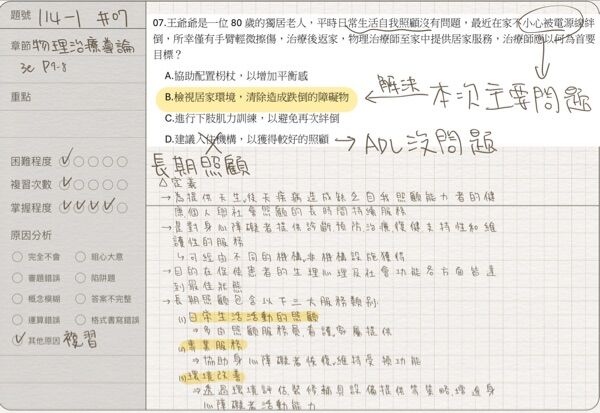 題號 114-1 #07
章節 物理治療導論
3e P9-8
重點
困難程度
複習次數
掌握程度
原因分析
完全不會 粗心大意
審題錯誤 陷阱題
概念模糊 答案不完整
運算錯誤 格式書寫錯誤
其他原因 複習
07.王爺爺是一位 80 歲的獨居老人,平時日常生活自我照顧沒有問題,最近在家不小心被電源線絆
倒,所幸僅有手臂輕微擦傷,治療後返家,物理治療師至家中提供居家服務,治療師應以何為首要
目標?
A.協助配置柺杖,以增加平衡感
B.檢視居家環境,清除造成跌倒的障礙物
解決 本次主要問題
C.進行下肢肌力訓練,以避免再次絆倒
D.建議入住機構,以獲得較好的照顧 → ADL沒問題
長期照顧
△定義
→為提供天生、後天疾病造成缺乏自我照顧能力者的健
康個人與社會照顧的長時間持續服務
→是對身心障礙者提供診斷預防治療、復健支持性和維
護性的服務
↳可經由不同的機構、非機構設施獲得
→目的在促使患者的生理心理及社會功能各方面皆達
到最佳狀態
→長期照顧包含以下三大服務類別:
(1)日常生活活動的照顧
→多由照顧服務員、看護、家屬提供
(2)專業服務
→協助身心障礙者恢復、維持受損功能
(3)環境改善
→透過環境評估、裝修輔具設備提供等策略增進身
心障礙者活動能力